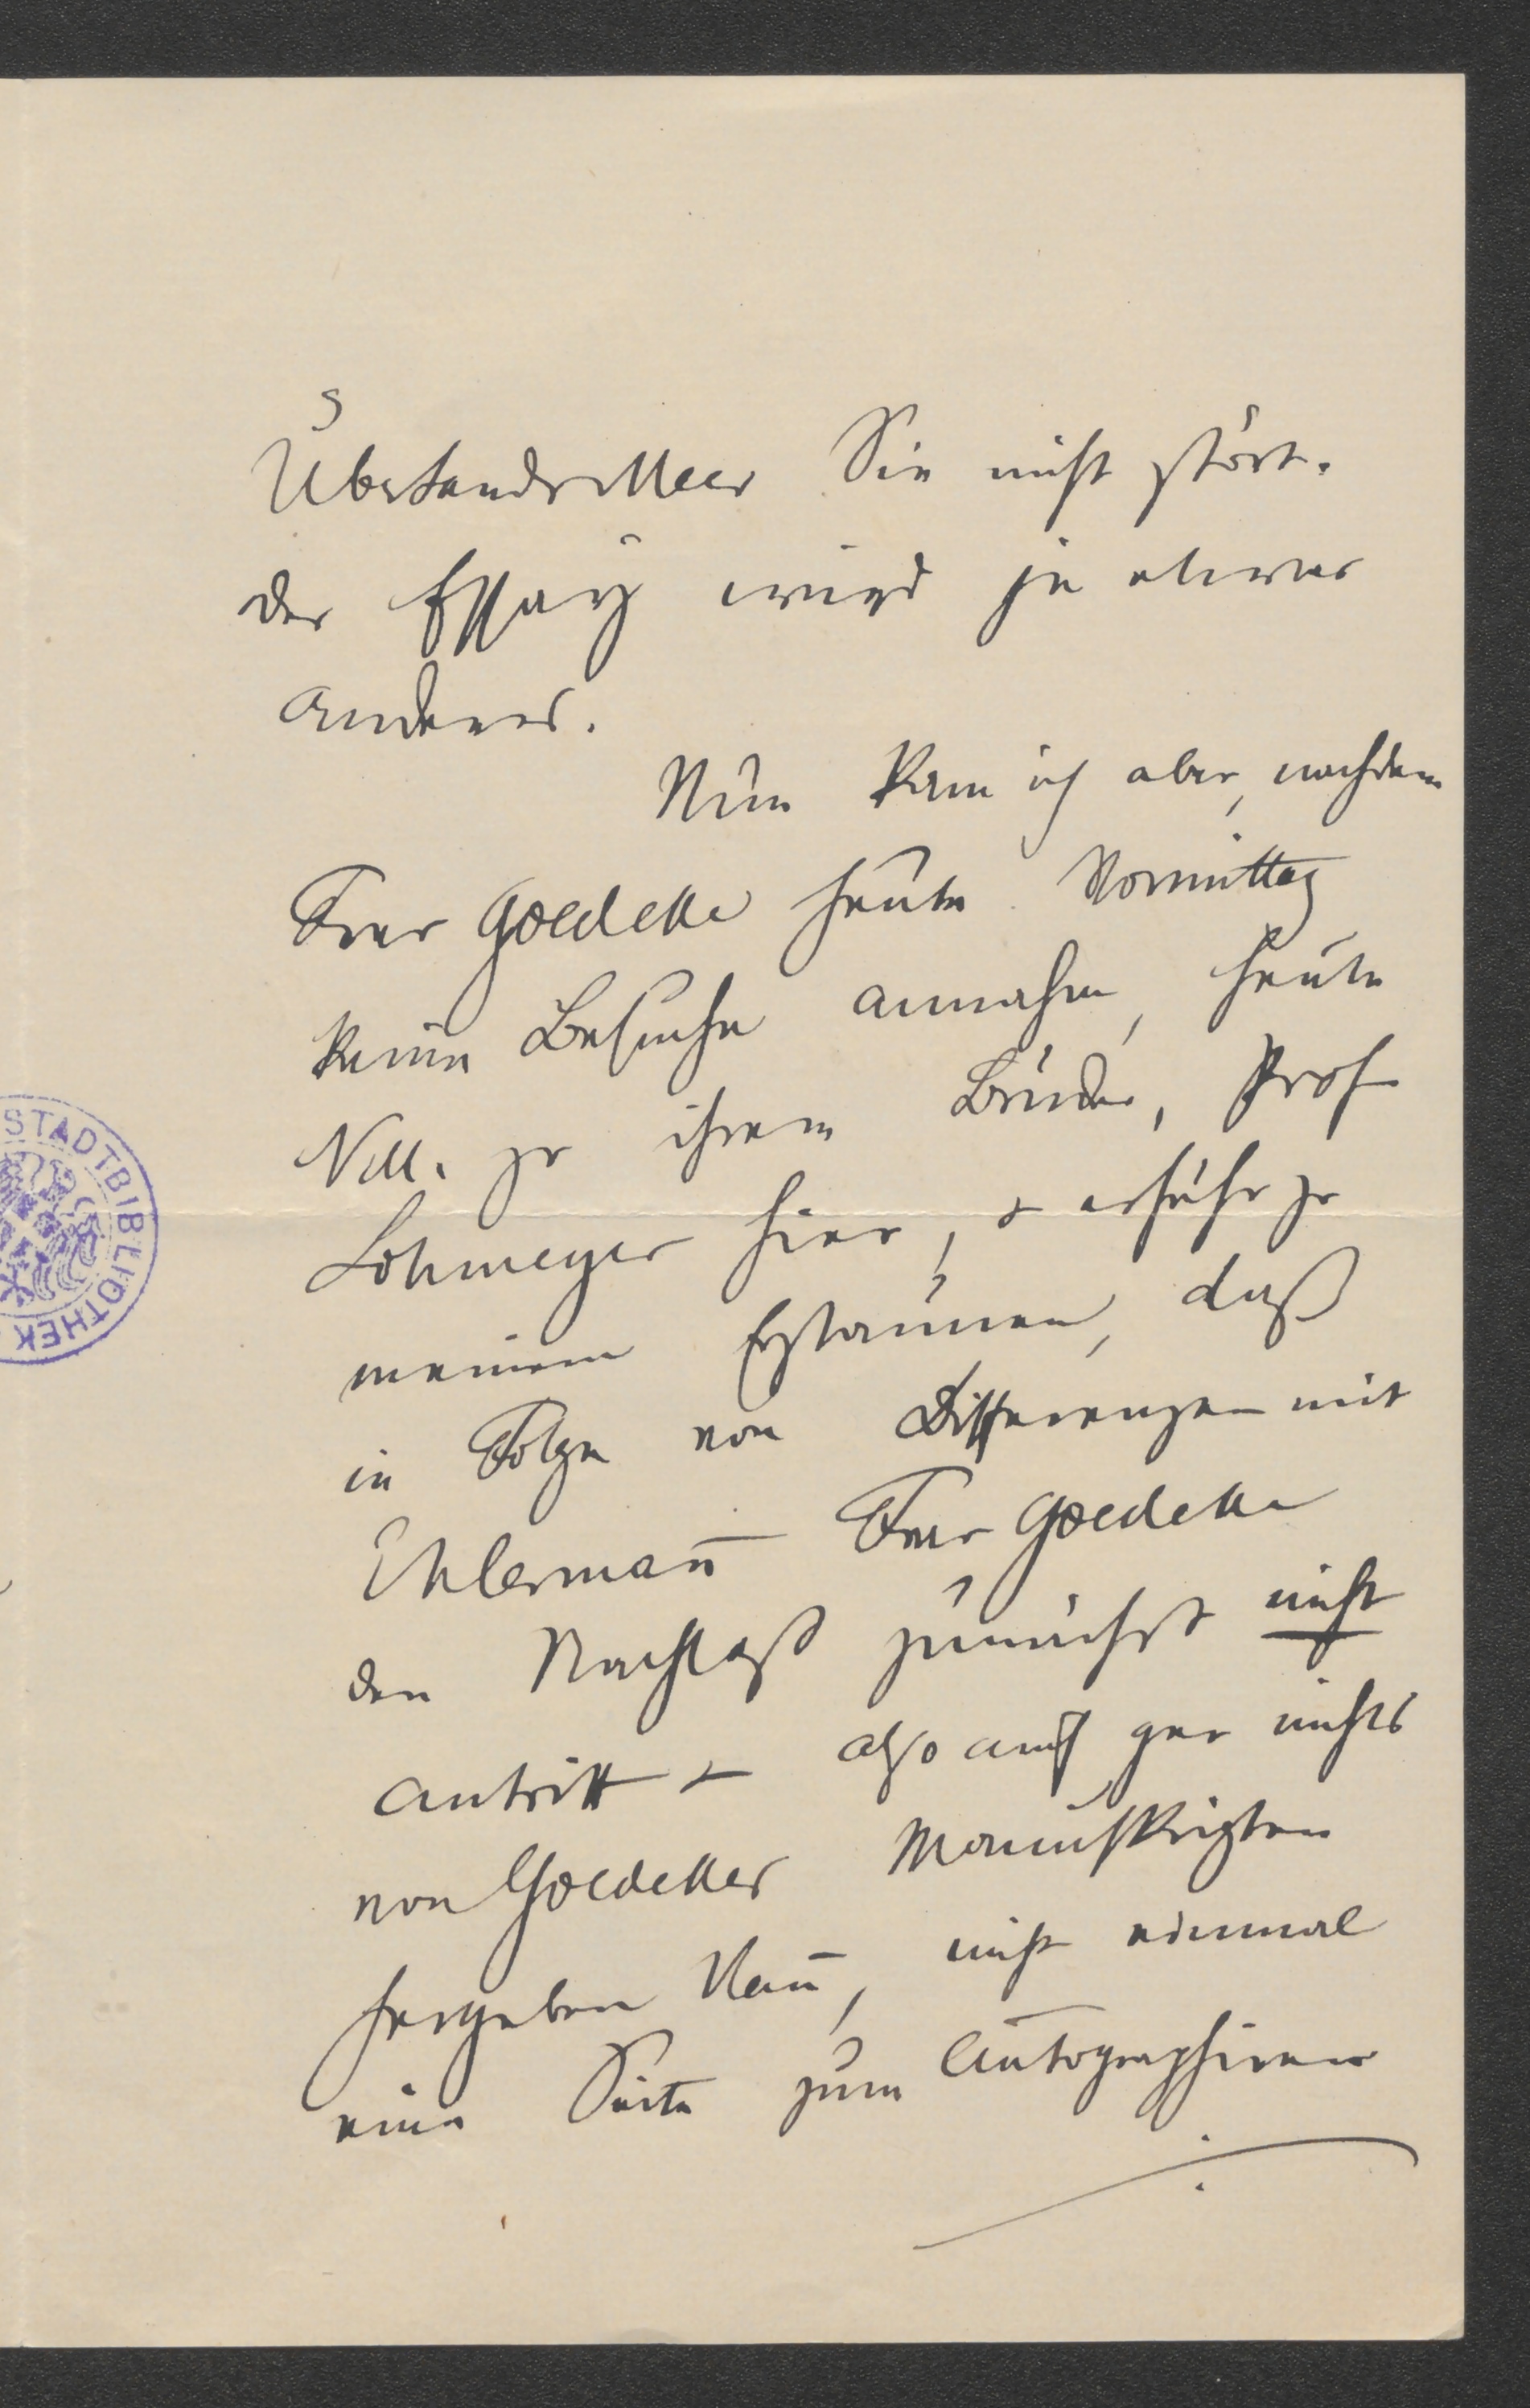 Über Land u Meer Sie nicht stört.
Der Essay wird ja etwas
Anderes.
Nun kam ich aber, nachdem
Frau Goedeke heute Vormittag
keine Besuche annahm, heute
NM. zu ihrem Bruder, Prof
Lohmeyer hier, & erfuhr zu
meinem Erstaunen, daß
in Folge von Differenzen mit
Ehlermañ Frau Goedeke
den Nachlaß zunächst nicht
antritt & also auch gar nichts
von Goedekes Manuskripten
hergeben kañ, nicht einmal
eine Seite zum Autographiren
STADTBIBLIOTHEK